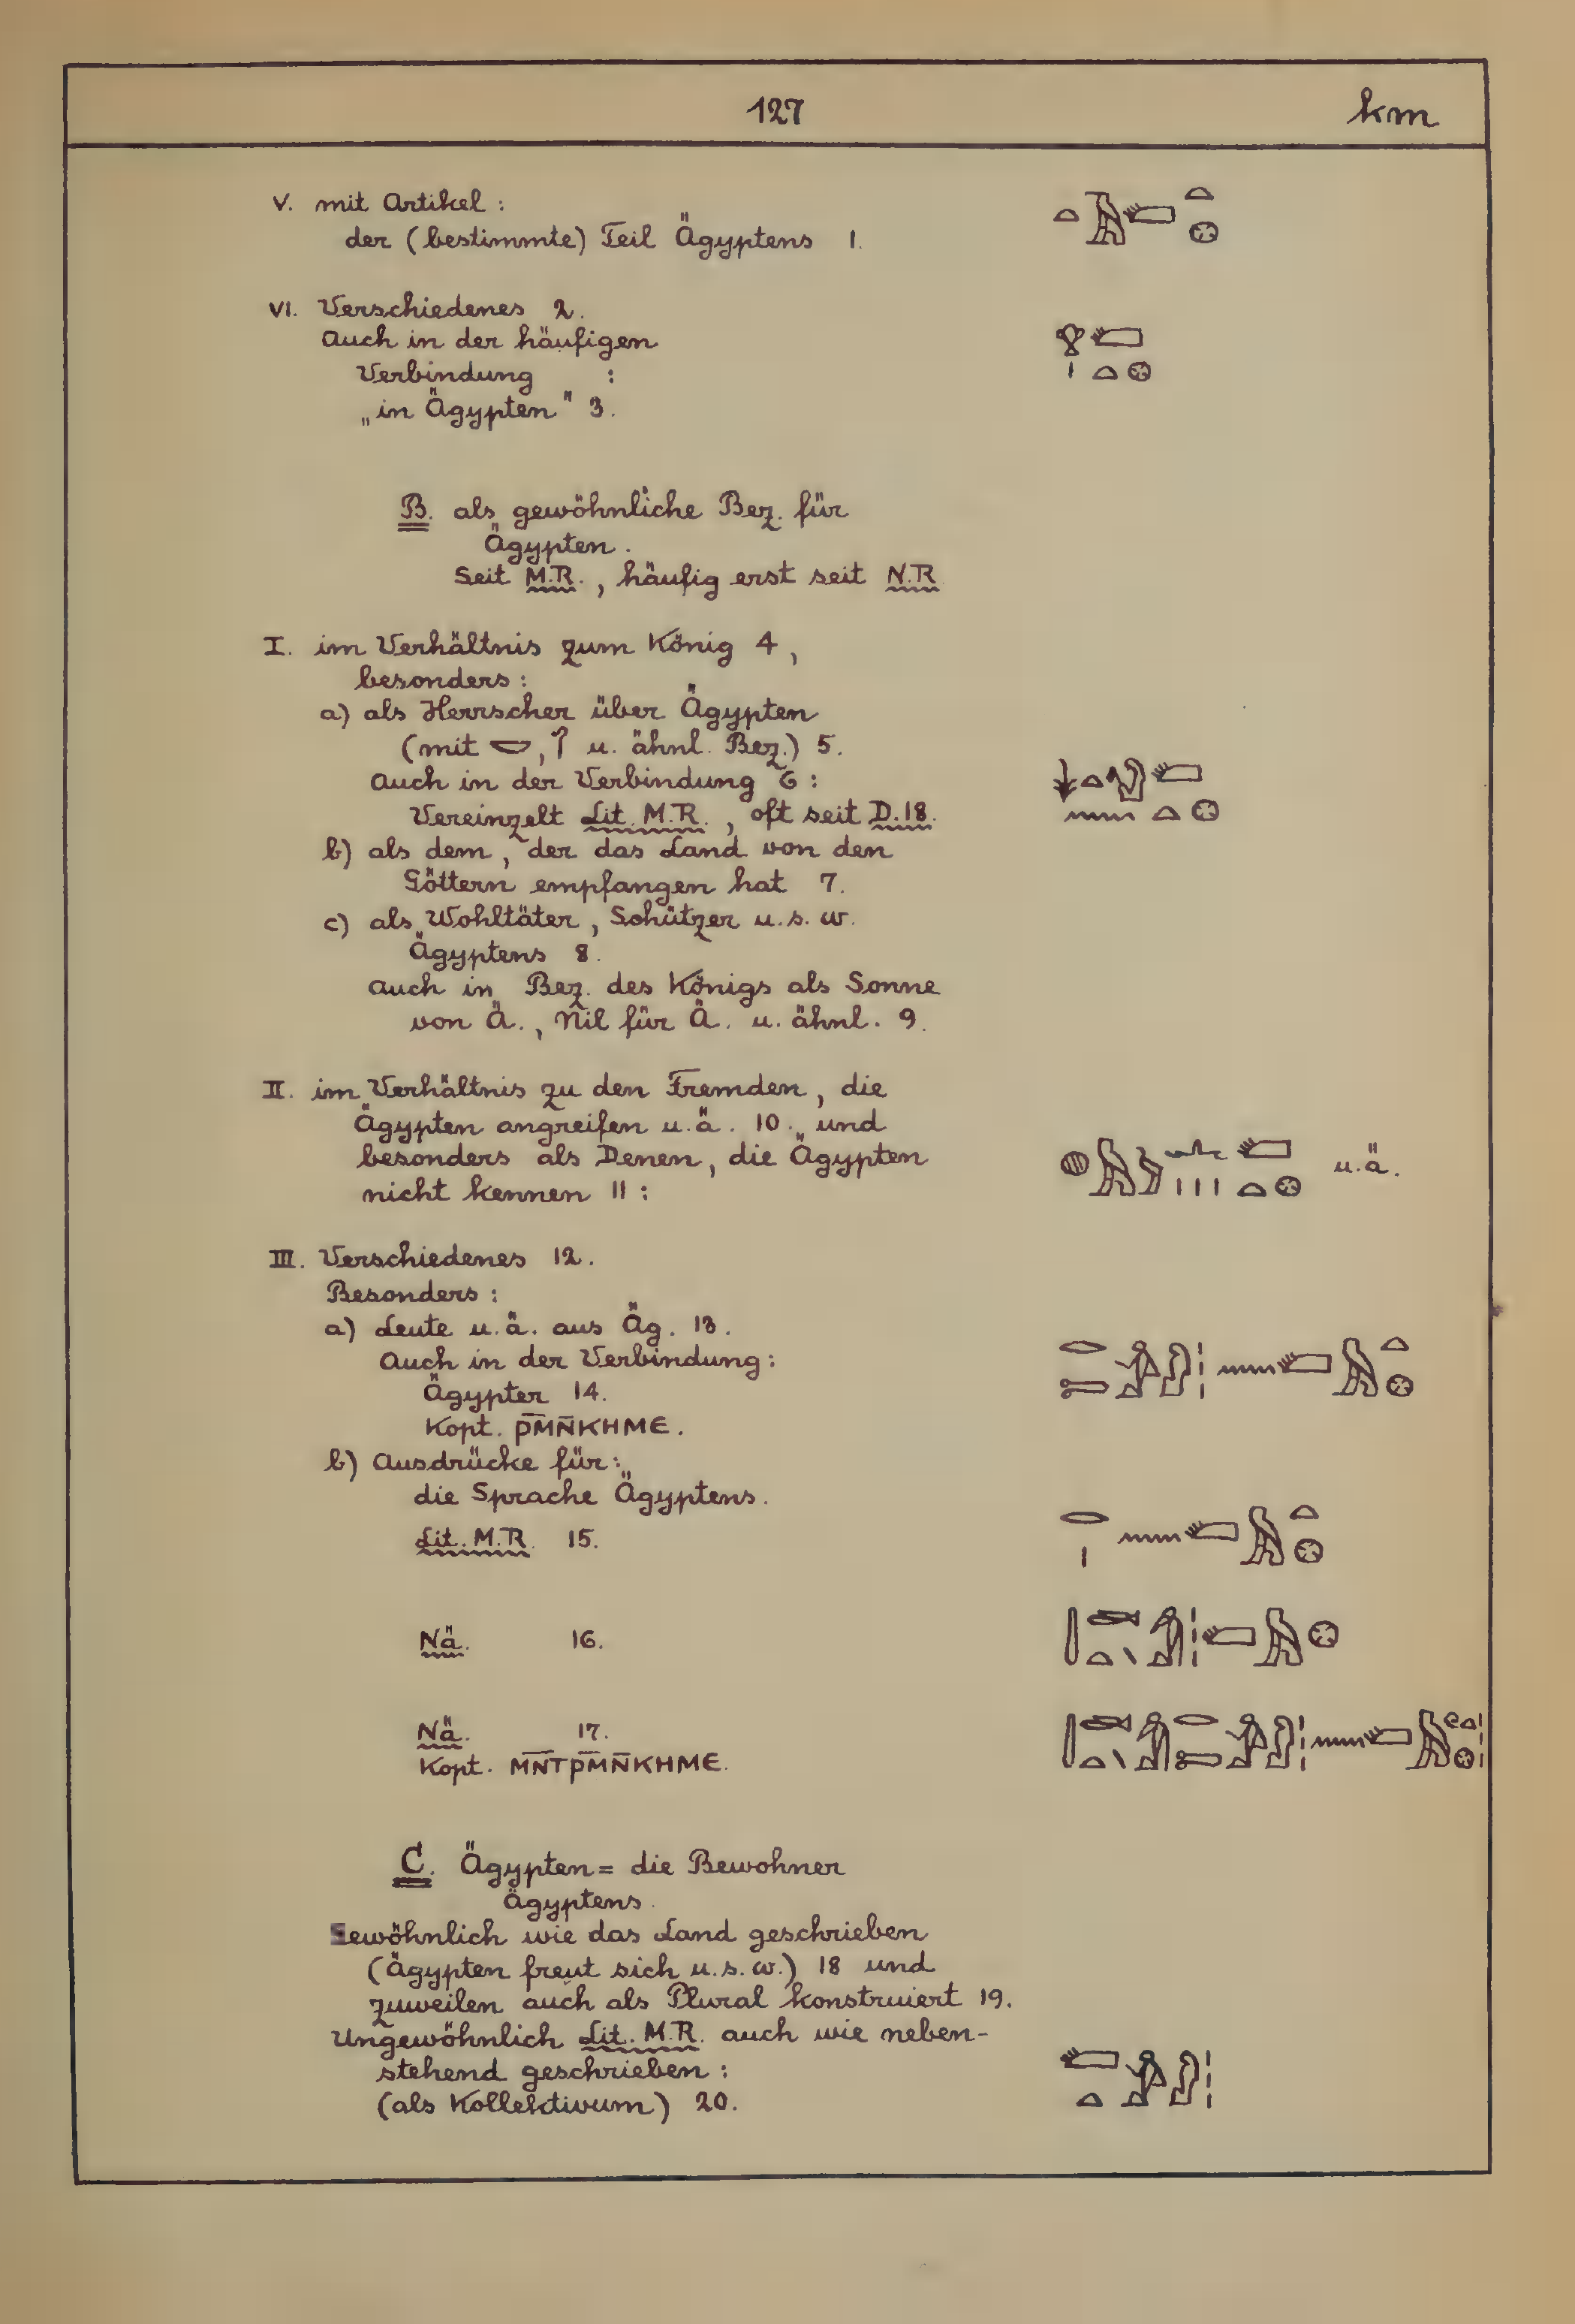 127 km
V. mit Artikel :
der (bestimmte) Teil Ägyptens 1.
VI. Verschiedenes 2.
Auch in der häufigen
Verbindung :
„in Ägypten" 3.
B. als gewöhnliche Bez. für
Ägypten.
Seit M.R., häufig erst seit N.R.
I. im Verhältnis zum König 4,
besonders :
a) als Herrscher über Ägypten
(mit 𓎟, 𓋾 u. ähnl. Bez.) 5.
Auch in der Verbindung 6 :
Vereinzelt Lit. M.R., oft seit D.18.
b) als dem, der das Land von den
Göttern empfangen hat 7.
c) als Wohltäter, Schützer u.s.w.
Ägyptens 8.
auch in Bez. des Königs als Sonne
von Ä., Nil für Ä. u. ähnl. 9.
II. im Verhältnis zu den Fremden, die
Ägypten angreifen u.ä. 10., und
besonders als Denen, die Ägypten
nicht kennen 11 : u.ä.
III. Verschiedenes 12.
Besonders :
a) Leute u.ä. aus Äg. 13.
Auch in der Verbindung :
Ägypter 14.
Kopt. ⲣⲙ̄ⲛ̄ⲕⲏⲙⲉ.
b) Ausdrücke für :
die Sprache Ägyptens.
Lit. M.R. 15.
Nä. 16.
Nä. 17.
Kopt. ⲙⲛ̄ⲧⲣⲙ̄ⲛ̄ⲕⲏⲙⲉ.
C. Ägypten = die Bewohner
Ägyptens.
Gewöhnlich wie das Land geschrieben
(Ägypten freut sich u.s.w.) 18 und
zuweilen auch als Plural konstruiert 19.
Ungewöhnlich Lit. M.R. auch wie neben-
stehend geschrieben :
(als Kollektivum) 20.